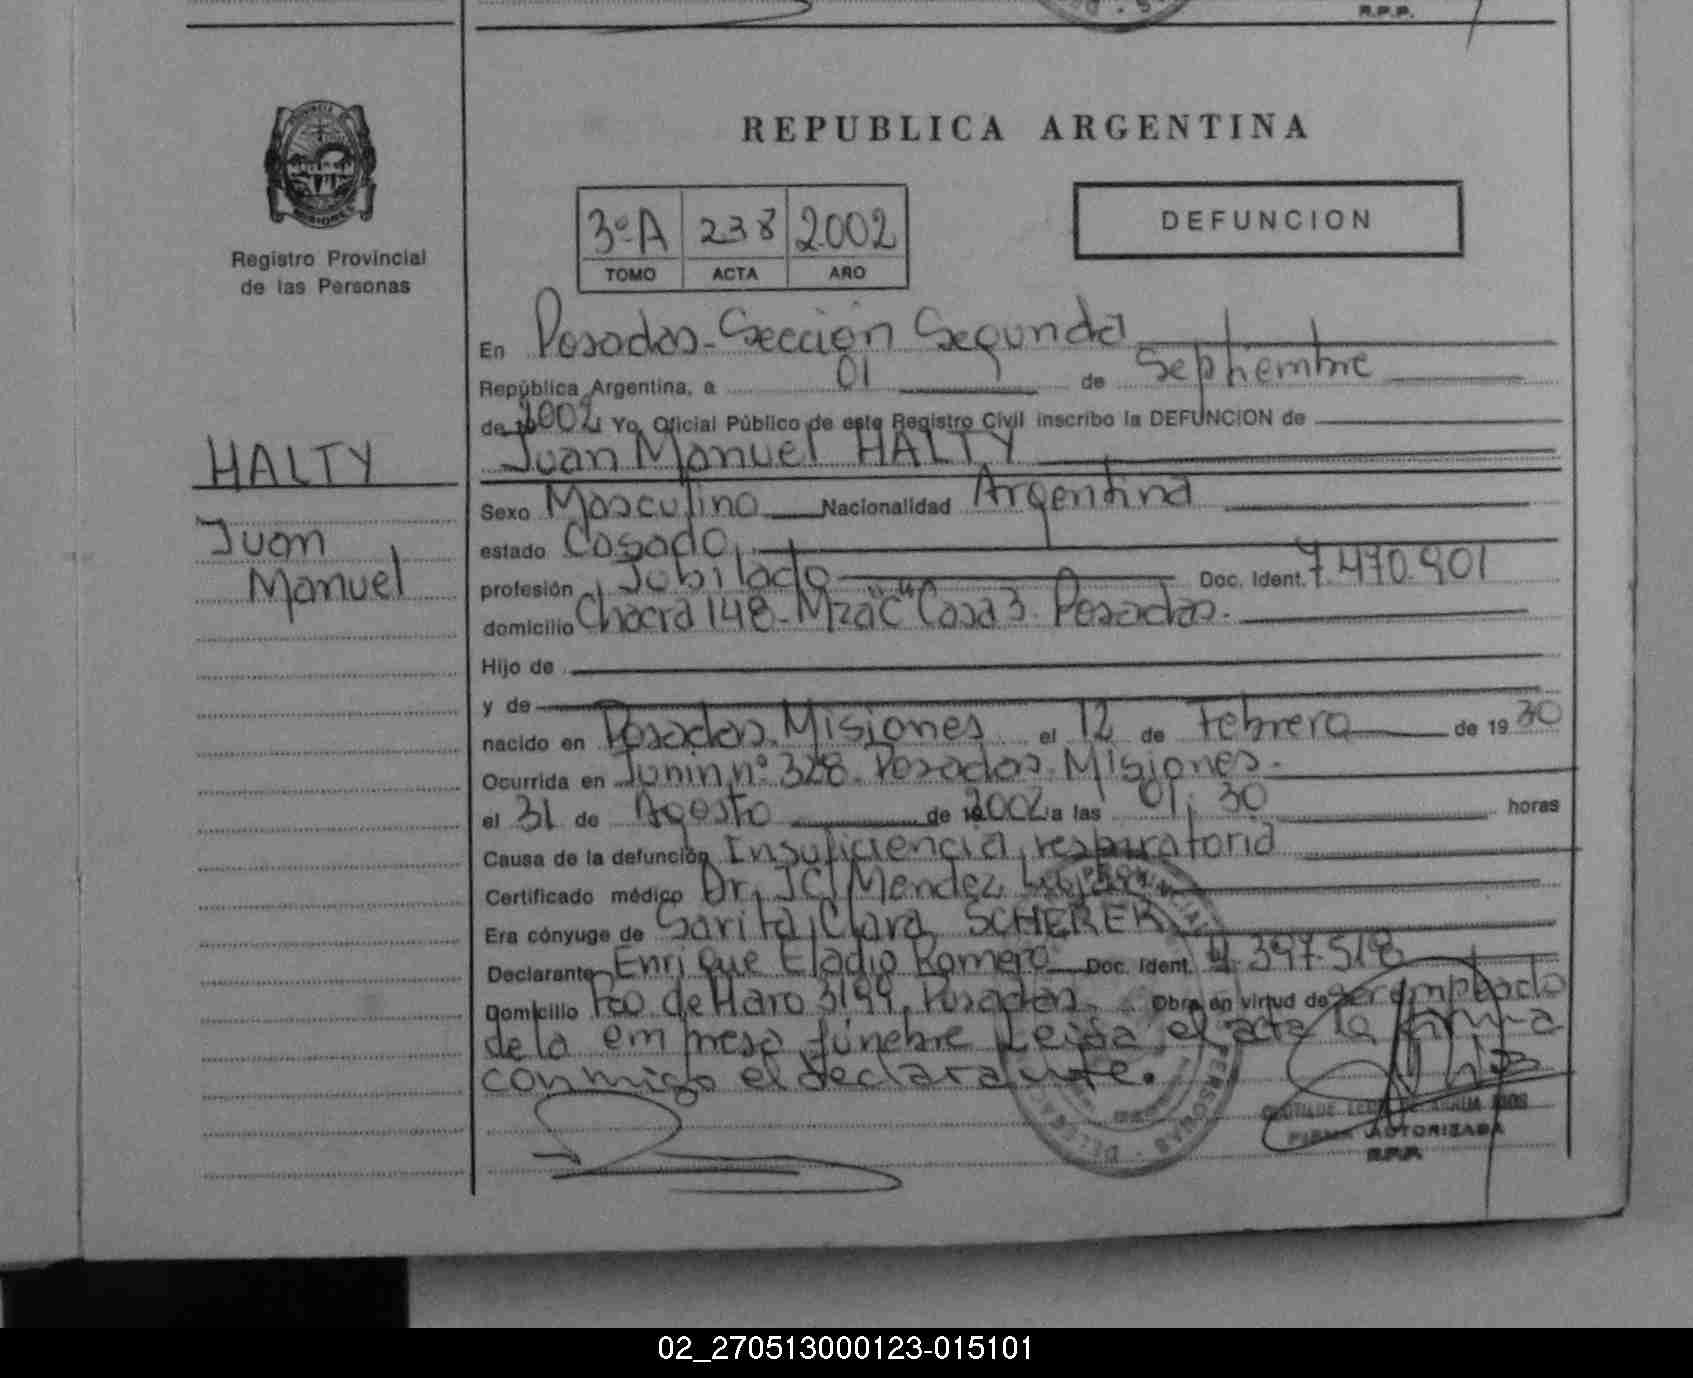 R.P.P.
PROVINCIA DE
MISIONES
Registro Provincial
de las Personas
HALTY
Juan
Manuel
REPUBLICA ARGENTINA
3º A 238 2002
TOMO ACTA AÑO
DEFUNCION
En Posadas - Sección Segunda
República Argentina, a 01 de Septiembre
de 2002 Yo, Oficial Público de este Registro Civil inscribo la DEFUNCION de
Juan Manuel HALTY
Sexo Masculino Nacionalidad Argentina
estado Casado
profesión Jubilado Doc. Ident. 7.470.901
domicilio Chacra 148 - Mza "C" Casa 3. Posadas.
Hijo de
y de
nacido en Posadas. Misiones el 12 de Febrero de 1930
Ocurrida en Junin nº 328. Posadas. Misiones.
el 31 de Agosto de 2002 a las 01:30 horas
Causa de la defunción Insuficiencia respiratoria
Certificado médico Dr. JC Mendez
Era cónyuge de Sarita Clara SCHERER
Declarante Enrique Eladio Romero Doc. Ident. 4.397.518
Domicilio Fco de Haro 3199, Posadas. Obra en virtud de ser empleado
de la empresa fúnebre Leida el acta la firma
conmigo el declarante.
FIRMA AUTORIZADA
R.P.P.
02_270513000123-015101